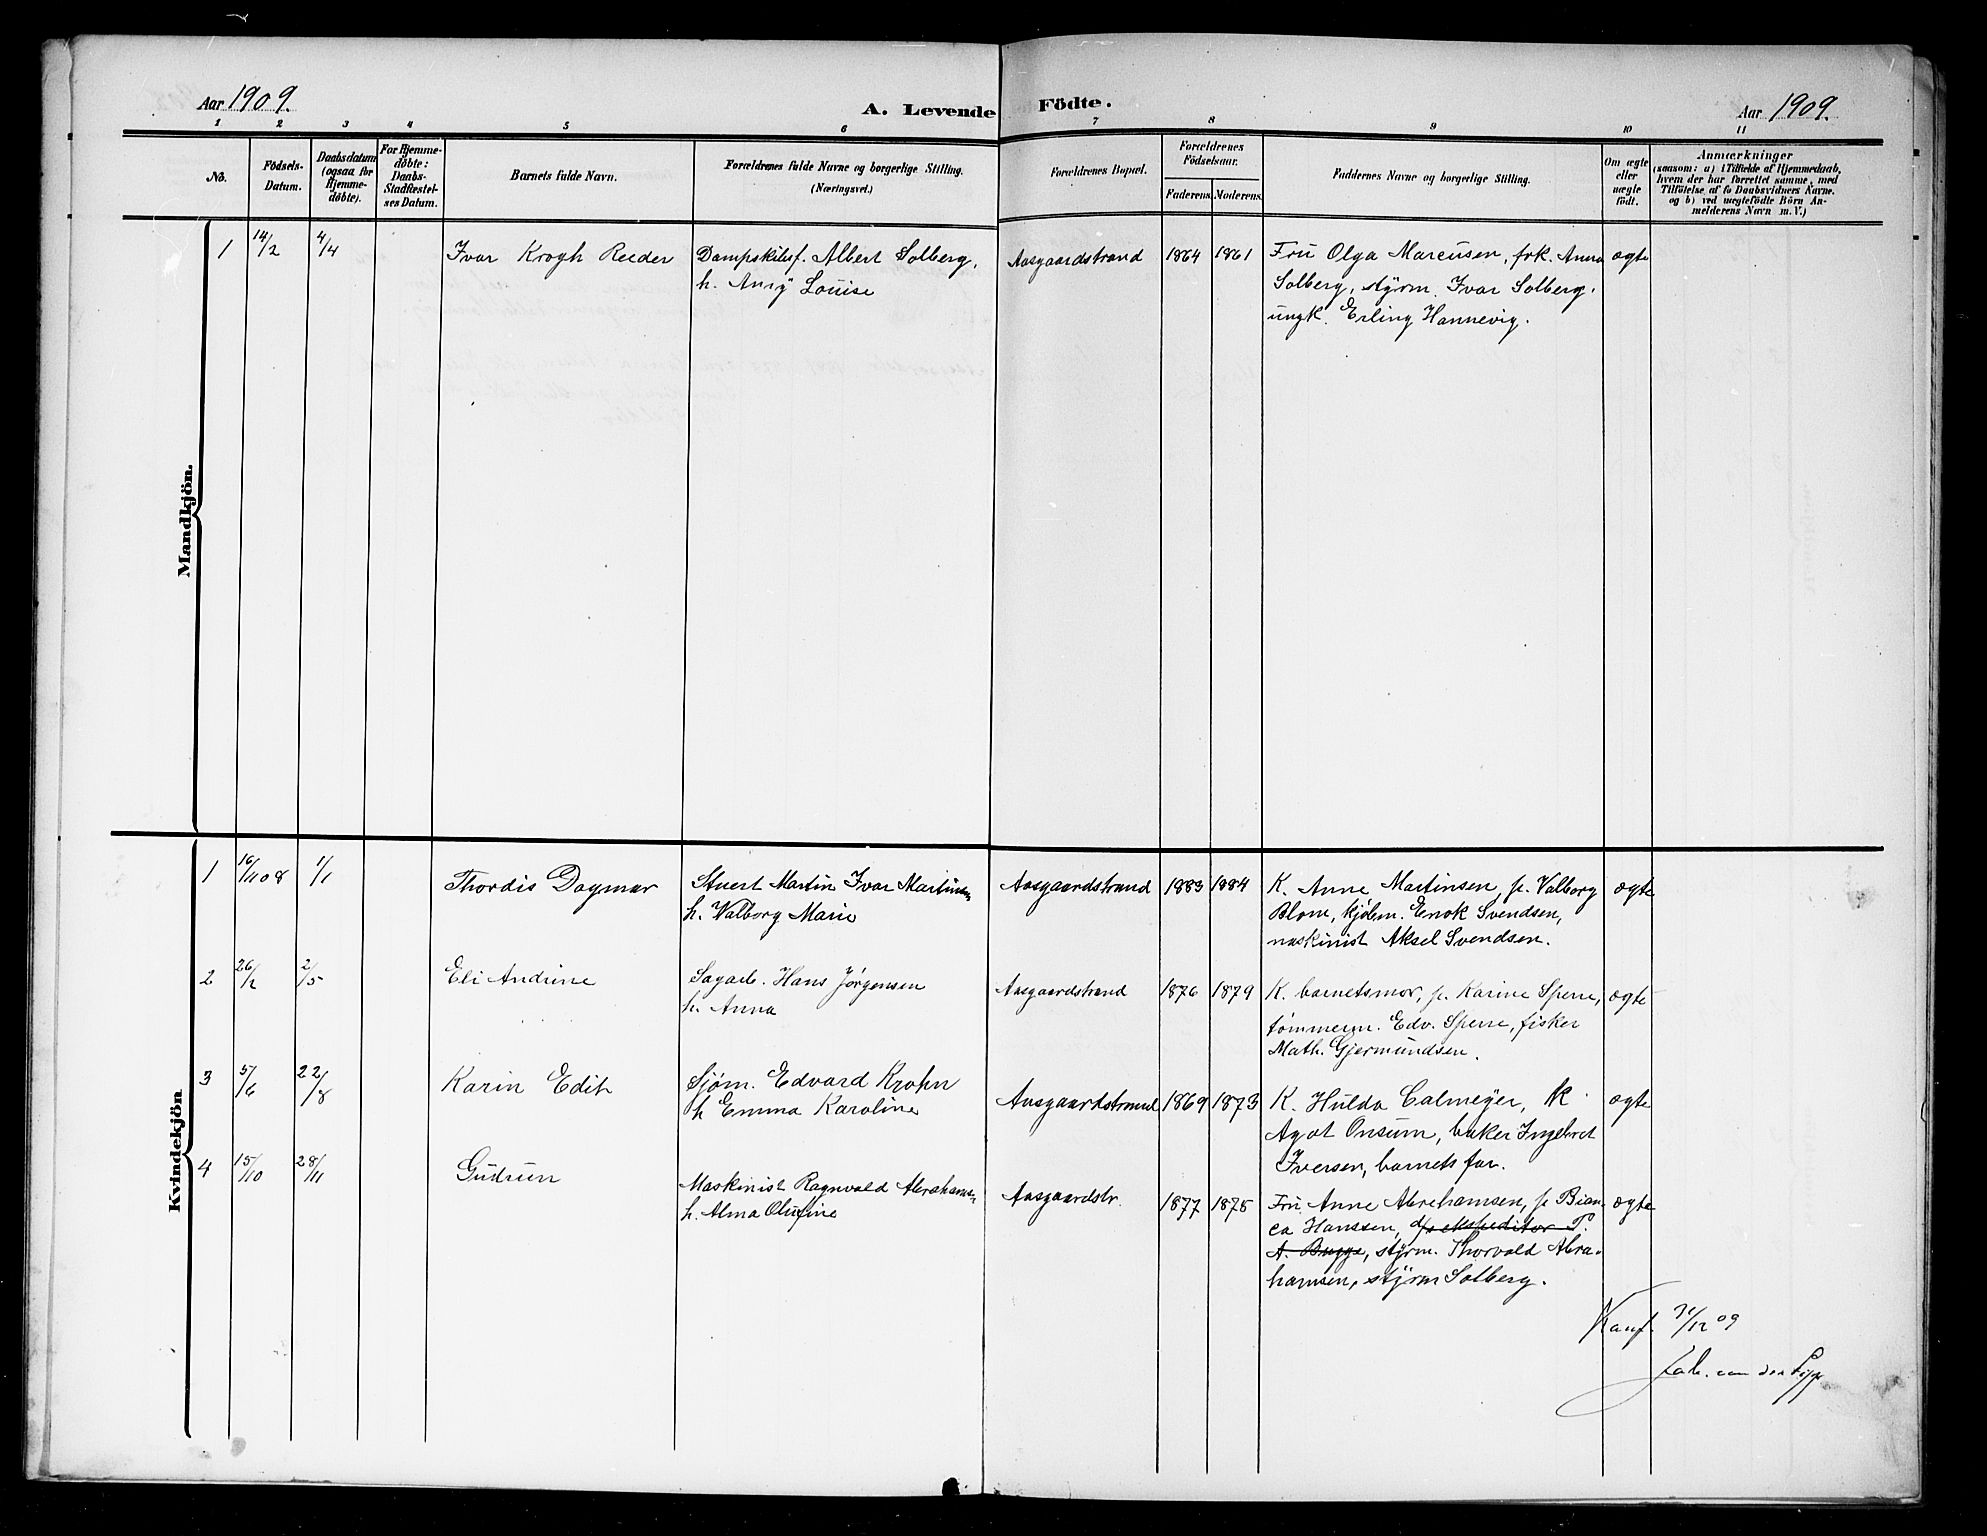 Aar 1909.
A. Levende Födte.
Aar 1909.
1 2 3 4 5 6 7 8 9 10 11
No.
Födsels-
Datum.
Daabsdatum
(ogsaa for
Hjemme-
döbte).
For Hjemme-
döbte:
Daabs-
Stadfæstel-
ses Datum.
Barnets fulde Navn.
Forældrenes fulde Navne og borgerlige Stilling.
(Næringsvei.)
Forældrenes Bopæl.
Forældrenes
Födselsaar.
Faderens. Moderens.
Faddernes Navne og borgerlige Stilling.
Om ægte
eller
uægte
födt.
Anmærkninger
(saasom: a) i Tilfælde af Hjemmedaab,
hvem der har forrettet samme, med
Tilföielse af to Daabsvidners Navne,
og b) ved uægtefödte Börn An-
melderens Navn m. V.)
Mandkjön.
1 14/2 4/4 Ivar Krogh Reeder Dampskibsf. Albert Solberg, Aasgaardstrand 1864 1861 Fru Olga Marcusen, frk. Anna ægte
h. Anny Louise Solberg, styrm. Ivar Solberg,
ungk. Erling Hannevig.
Kvindekjön
1 16/11 08 1/1 Thordis Dagmar Stuert Martin Ivar Martinsen Aasgaardstrand 1883 1884 K. Anne Martinsen, p. Valborg ægte
h. Valborg Marie Blom, kjøbm. Enok Svendsen,
maskinist Aksel Svendsen.
2 26/2 2/5 Eli Andrine Sagarb. Hans Jørgensen Aasgaardstrand 1876 1879 K. barnetsmor, p. Karine Sperre, ægte
h. Anna tømmerm. Edv. Sperre, fisker
Math. Gjermundsen.
3 5/6 22/8 Karin Edit Sjøm. Edvard Krohn Aasgaardstrand 1869 1873 K. Hulda Calmeyer, K. ægte
h Emma Karoline Agot Onsum, baker Ingebret
Iversen, barnets far.
4 15/10 28/11 Gudrun Maskinist Ragnvald Abrahams. Aasgaardstr. 1877 1875 Fru Anne Abrahamsen, p Bian- ægte
h. Alma Olufine ca Hanssen, d/s ekspeditør T.
A. Bugge, styrm. Thorvald Abra-
hamsen, styrm Solberg.
Konf. 31/12 09